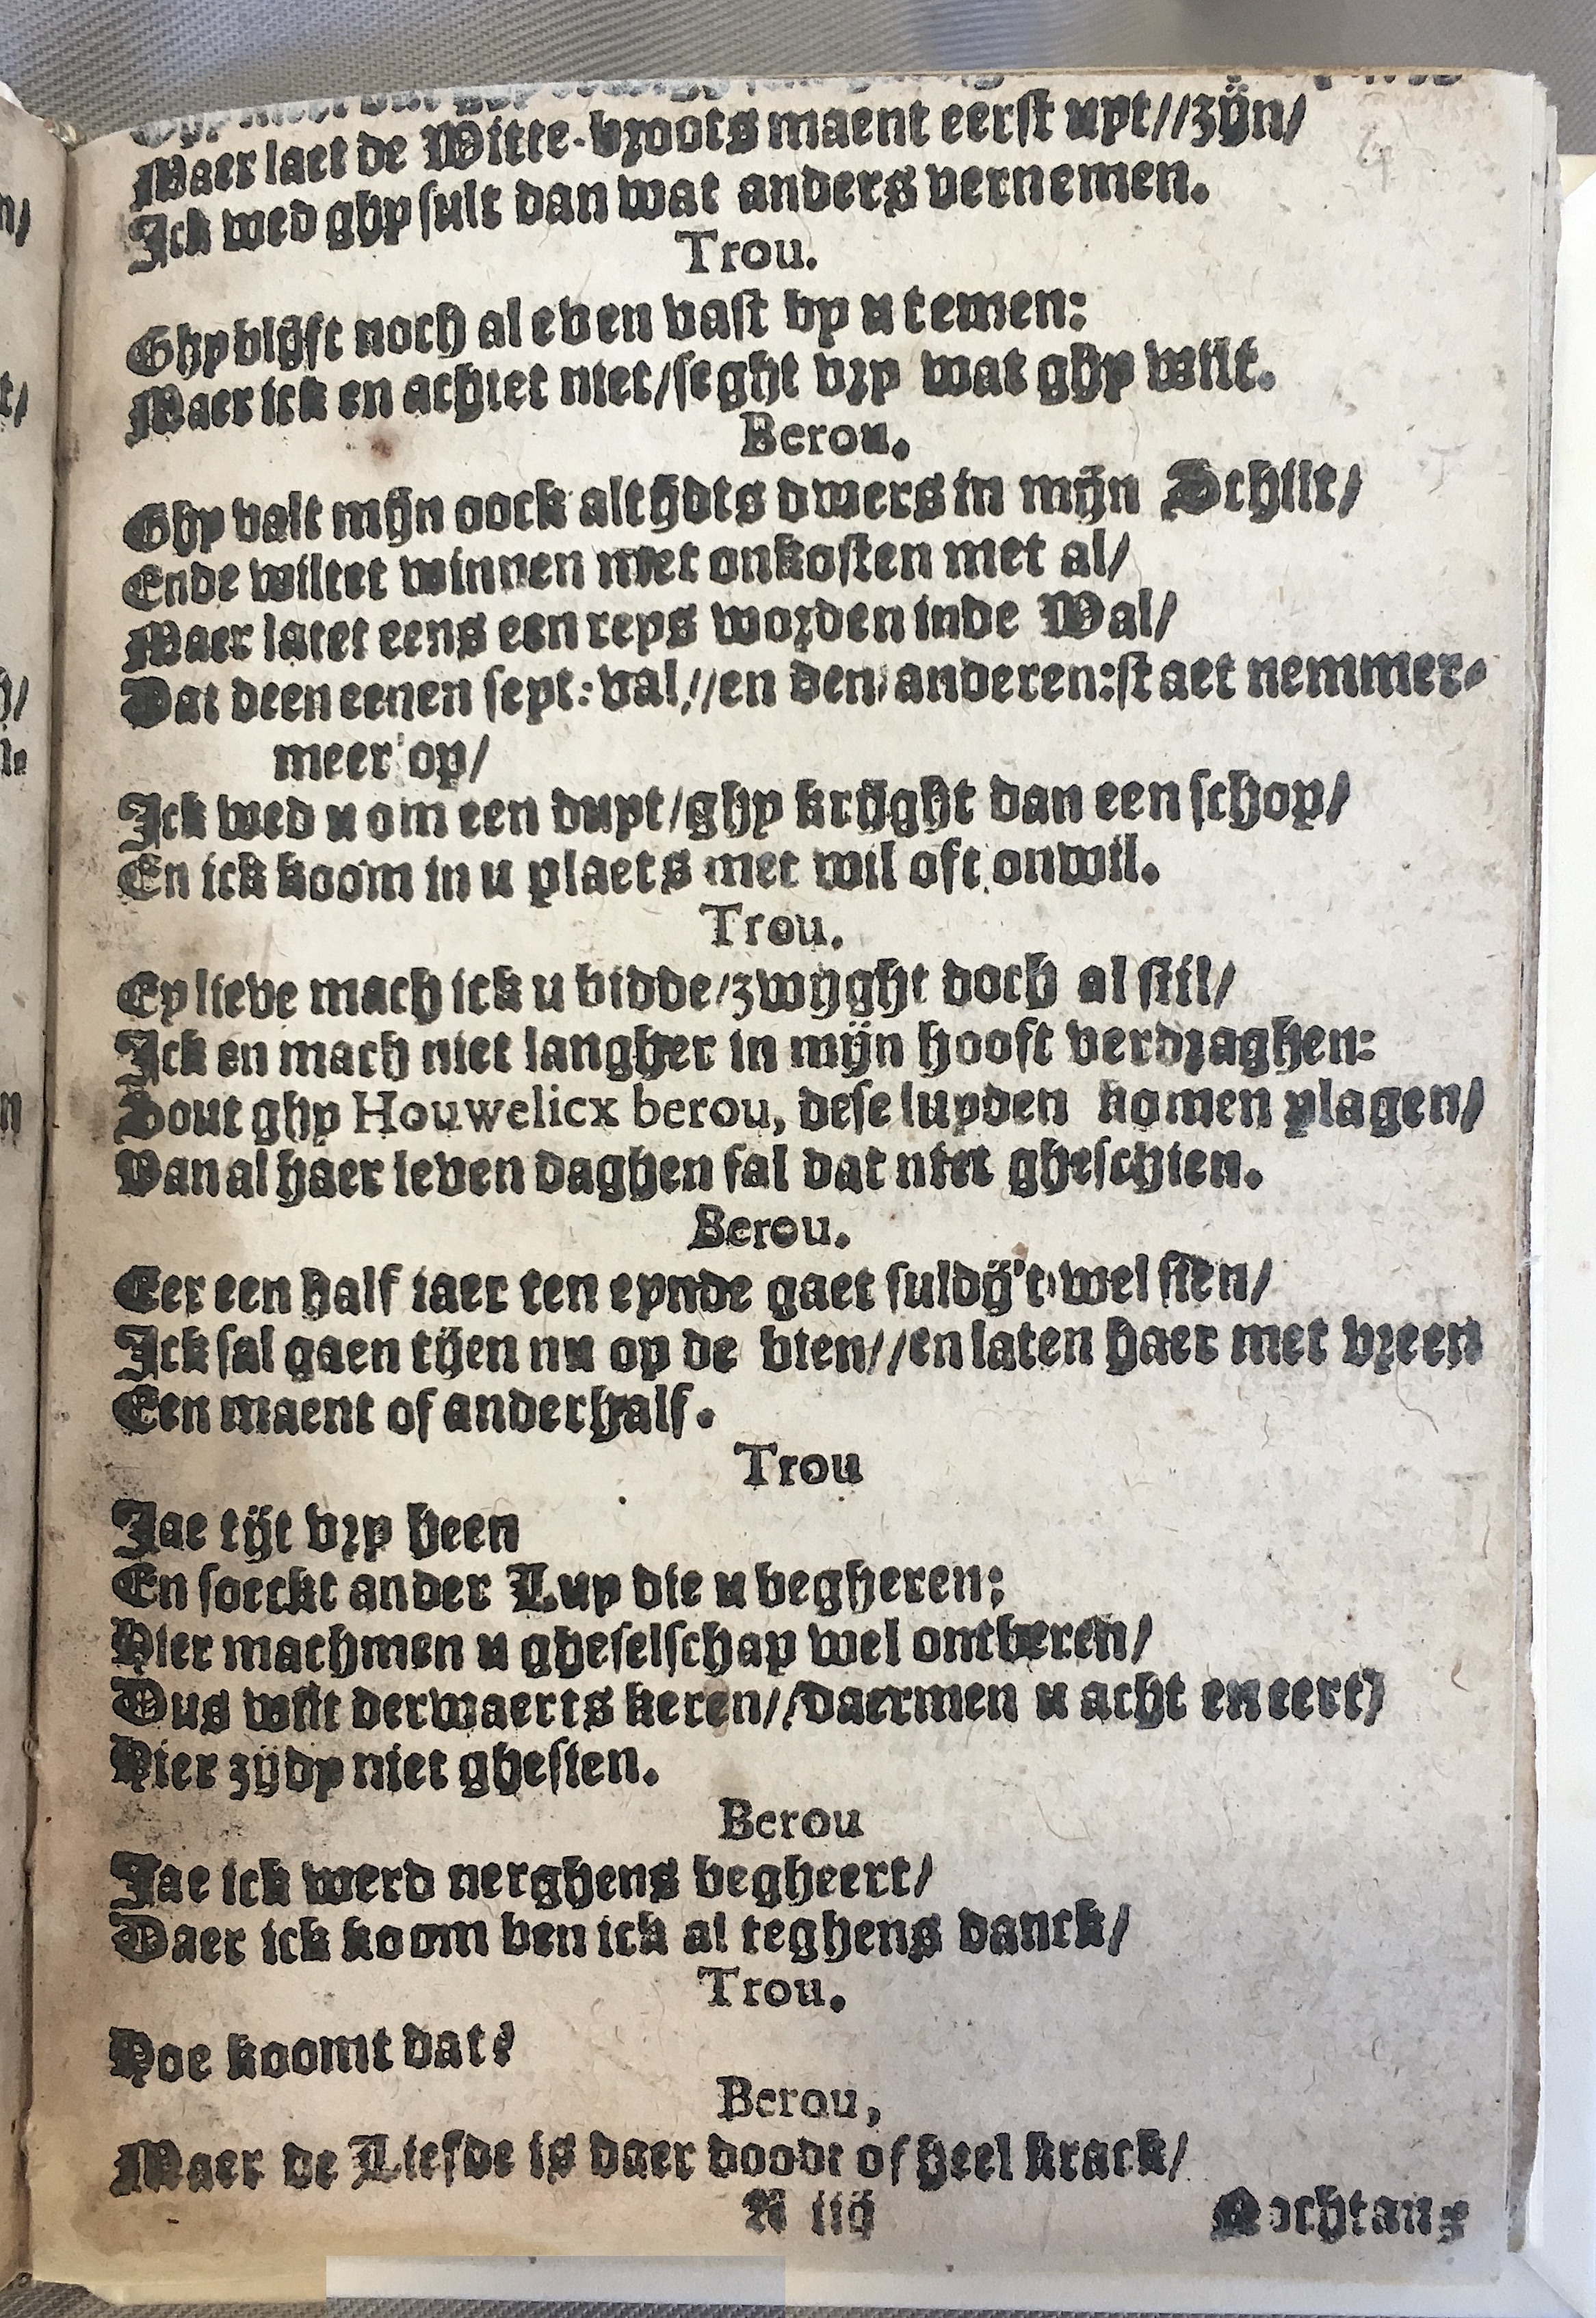 Maer laet de Witte-broots maent eerst uyt//zijn/
Ick wed ghy sult dan wat anders vernemen.
Trou.
Ghy blijft noch al even vast by u temen:
Maer ick en achtet niet/seght vry wat ghy wilt.
Berou.
Ghy valt mijn oock altijdts dwers in mijn Schilt/
Ende wiltet winnen met onkosten met al/
Maer latet eens een reys worden inde Wal/
Dat deen eenen seyt: val!//en den anderen:staet nemmer-
meer op/
Ick wed u om een duyt/ghy krijght dan een schop/
En ick koom in u plaets met wil oft onwil.
Trou.
Ey lieve mach ick u bidde/zwijght doch al stil/
Ick en mach niet langher in mijn hooft verdraghen:
Sout ghy Houwelicx berou, dese luyden komen plagen/
Van al haer leven daghen sal dat niet gheschien.
Berou.
Eer een half iaer ten eynde gaet suldij't wel sien/
Ick sal gaen tijen nu op de bien//en laten haer met vreen
Een maent of anderhalf.
Trou
Jae tijt vry heen
En soeckt ander Luy die u begheren;
Hier machmen u gheselschap wel ontberen/
Dus wilt derwaerts keren//daermen u acht en eert/
Hier zijdy niet ghesien.
Berou
Jae ick werd nerghens begheert/
Daer ick koom ben ick al teghens danck/
Trou.
Hoe koomt dat?
Berou,
Maer de Liefde is daer doodt of heel kranck/
N iij
Nochtans